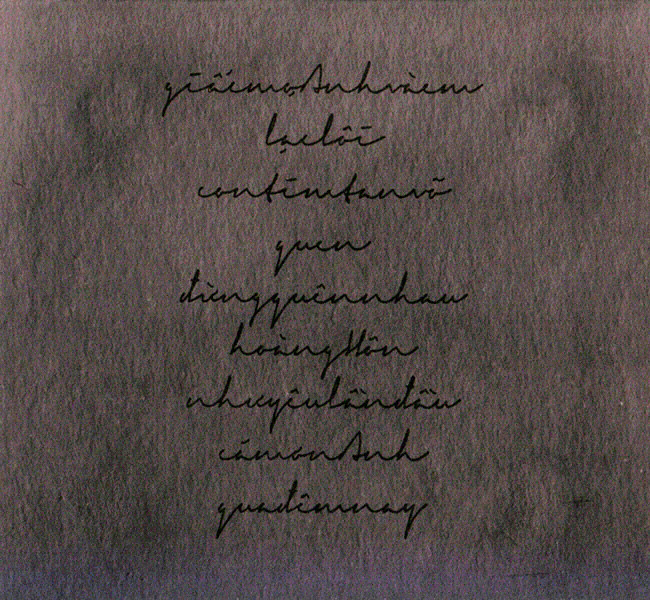 giấcmơAnhvàem
lạclối
contimtanvỡ
quen
đừngquênnhau
hoàngHôn
nhưyêulầnđầu
cámơnAnh
quađêmnay